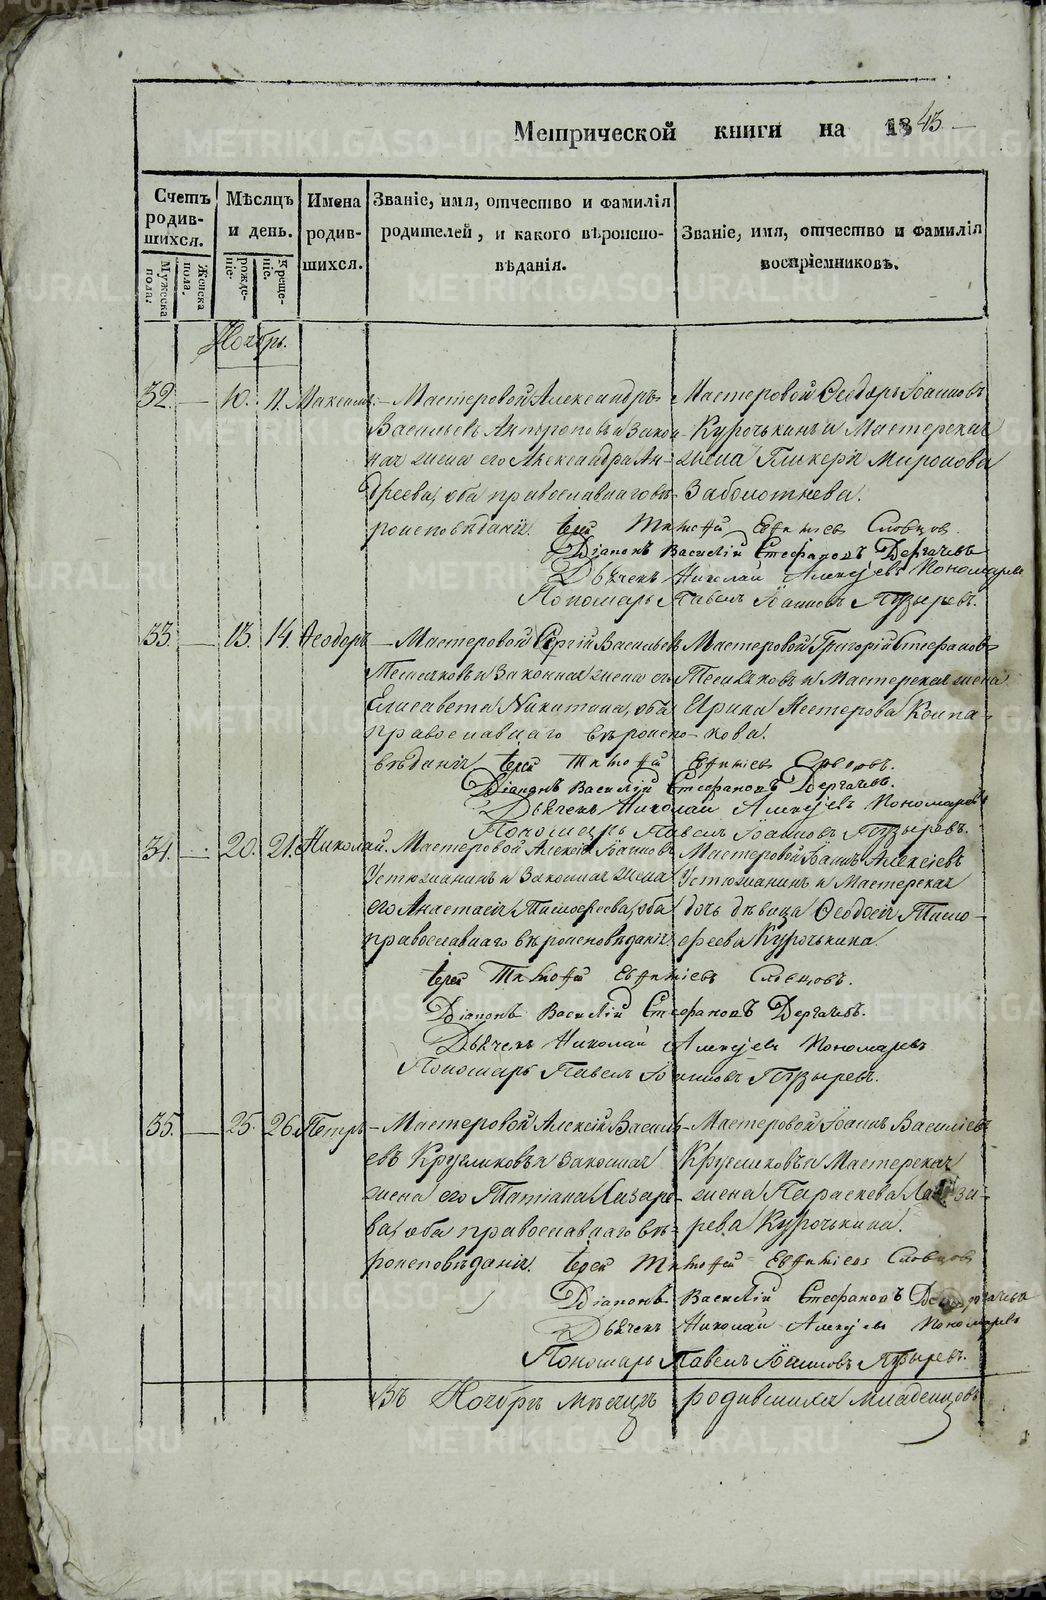 Метрической книги на 1843.
Счетъ родив-шихся.
Мужеска пола.
Женска пола.
Мѣсяцъ и день.
рожде-ніе.
креще-ніе.
Имена родив-шихся.
Званіе, имя, отчество и фамилія
родителей, и какого вѣроиспо-
вѣданія.
Званіе, имя, отчество и фамилія
воспріемниковъ.
Ноябрь.
32. — 10. 11. Максимъ.
Мастеровой Александръ
Васильевъ Антроповъ и закон-
ная жена его Александра Ан-
дреева, оба православнаго вѣ-
роисповѣданія.
Мастеровой Ѳеодоръ Іоанновъ
Курочькинъ и Мастерская
жена Гликерія Миронова
Заболотнева.
Іерей Тимоѳей Евѳиміевъ Словцов
Діаконъ Василій Стефановъ Дергачевъ
Дьячекъ Николай Алексѣевъ Пономаревъ
Пономарь Павелъ Іоанновъ Пузыревъ.
33. — 13. 14. Ѳеодоръ
Мастеровой Сергій Васильевъ
Пешляковъ и законная жена его
Елисавета Никитина, оба
православнаго вѣроиспо-
вѣданія
Мастеровой Григорій Стефановъ
Пешляковъ и Мастерская жена
Ирина Нестерова Колпа-
кова.
Іерей Тимоѳей Евѳиміевъ Словцовъ.
Діаконъ Василій Стефановъ Дергачевъ.
Дьячекъ Николай Алексѣевъ Пономаревъ
Пономарь Павелъ Іоанновъ Пузыревъ.
34. — 20. 21. Николай.
Мастеровой Алексій Іоанновъ
Устюжанинъ и законная жена
его Анастасія Тимоѳеева, оба
православнаго вѣроисповѣданія.
Мастеровой Іоаннъ Алексіевъ
Устюжанинъ и Мастерская
дочь дѣвица Ѳеодосія Тимо-
ѳеева Курочькина.
Іерей Тимоѳей Евѳиміевъ Словцовъ.
Діаконъ Василій Стефановъ Дергачевъ.
Дьячекъ Николай Алексѣевъ Пономаревъ
Пономарь Павелъ Іоанновъ Пузыревъ.
35. — 25. 26. Петръ
Мастеровой Алексій Василь-
евъ Кругликовъ и законная
жена его Татіана Лазаре-
ва, оба православнаго вѣ-
роисповѣданія.
Мастеровой Іоаннъ Василіевъ
Кругликовъ и Мастерская
жена Параскева Лаза-
рева Курочькина.
Іерей Тимоѳей Евѳиміевъ Словцовъ
Діаконъ Василій Стефановъ Дергачевъ
Дьячекъ Николай Алексѣевъ Пономаревъ
Пономарь Павелъ Іоанновъ Пузыревъ.
Въ Ноябрѣ мѣсяцѣ родившихся младенцовъ
METRIKI.GASO-URAL.RU